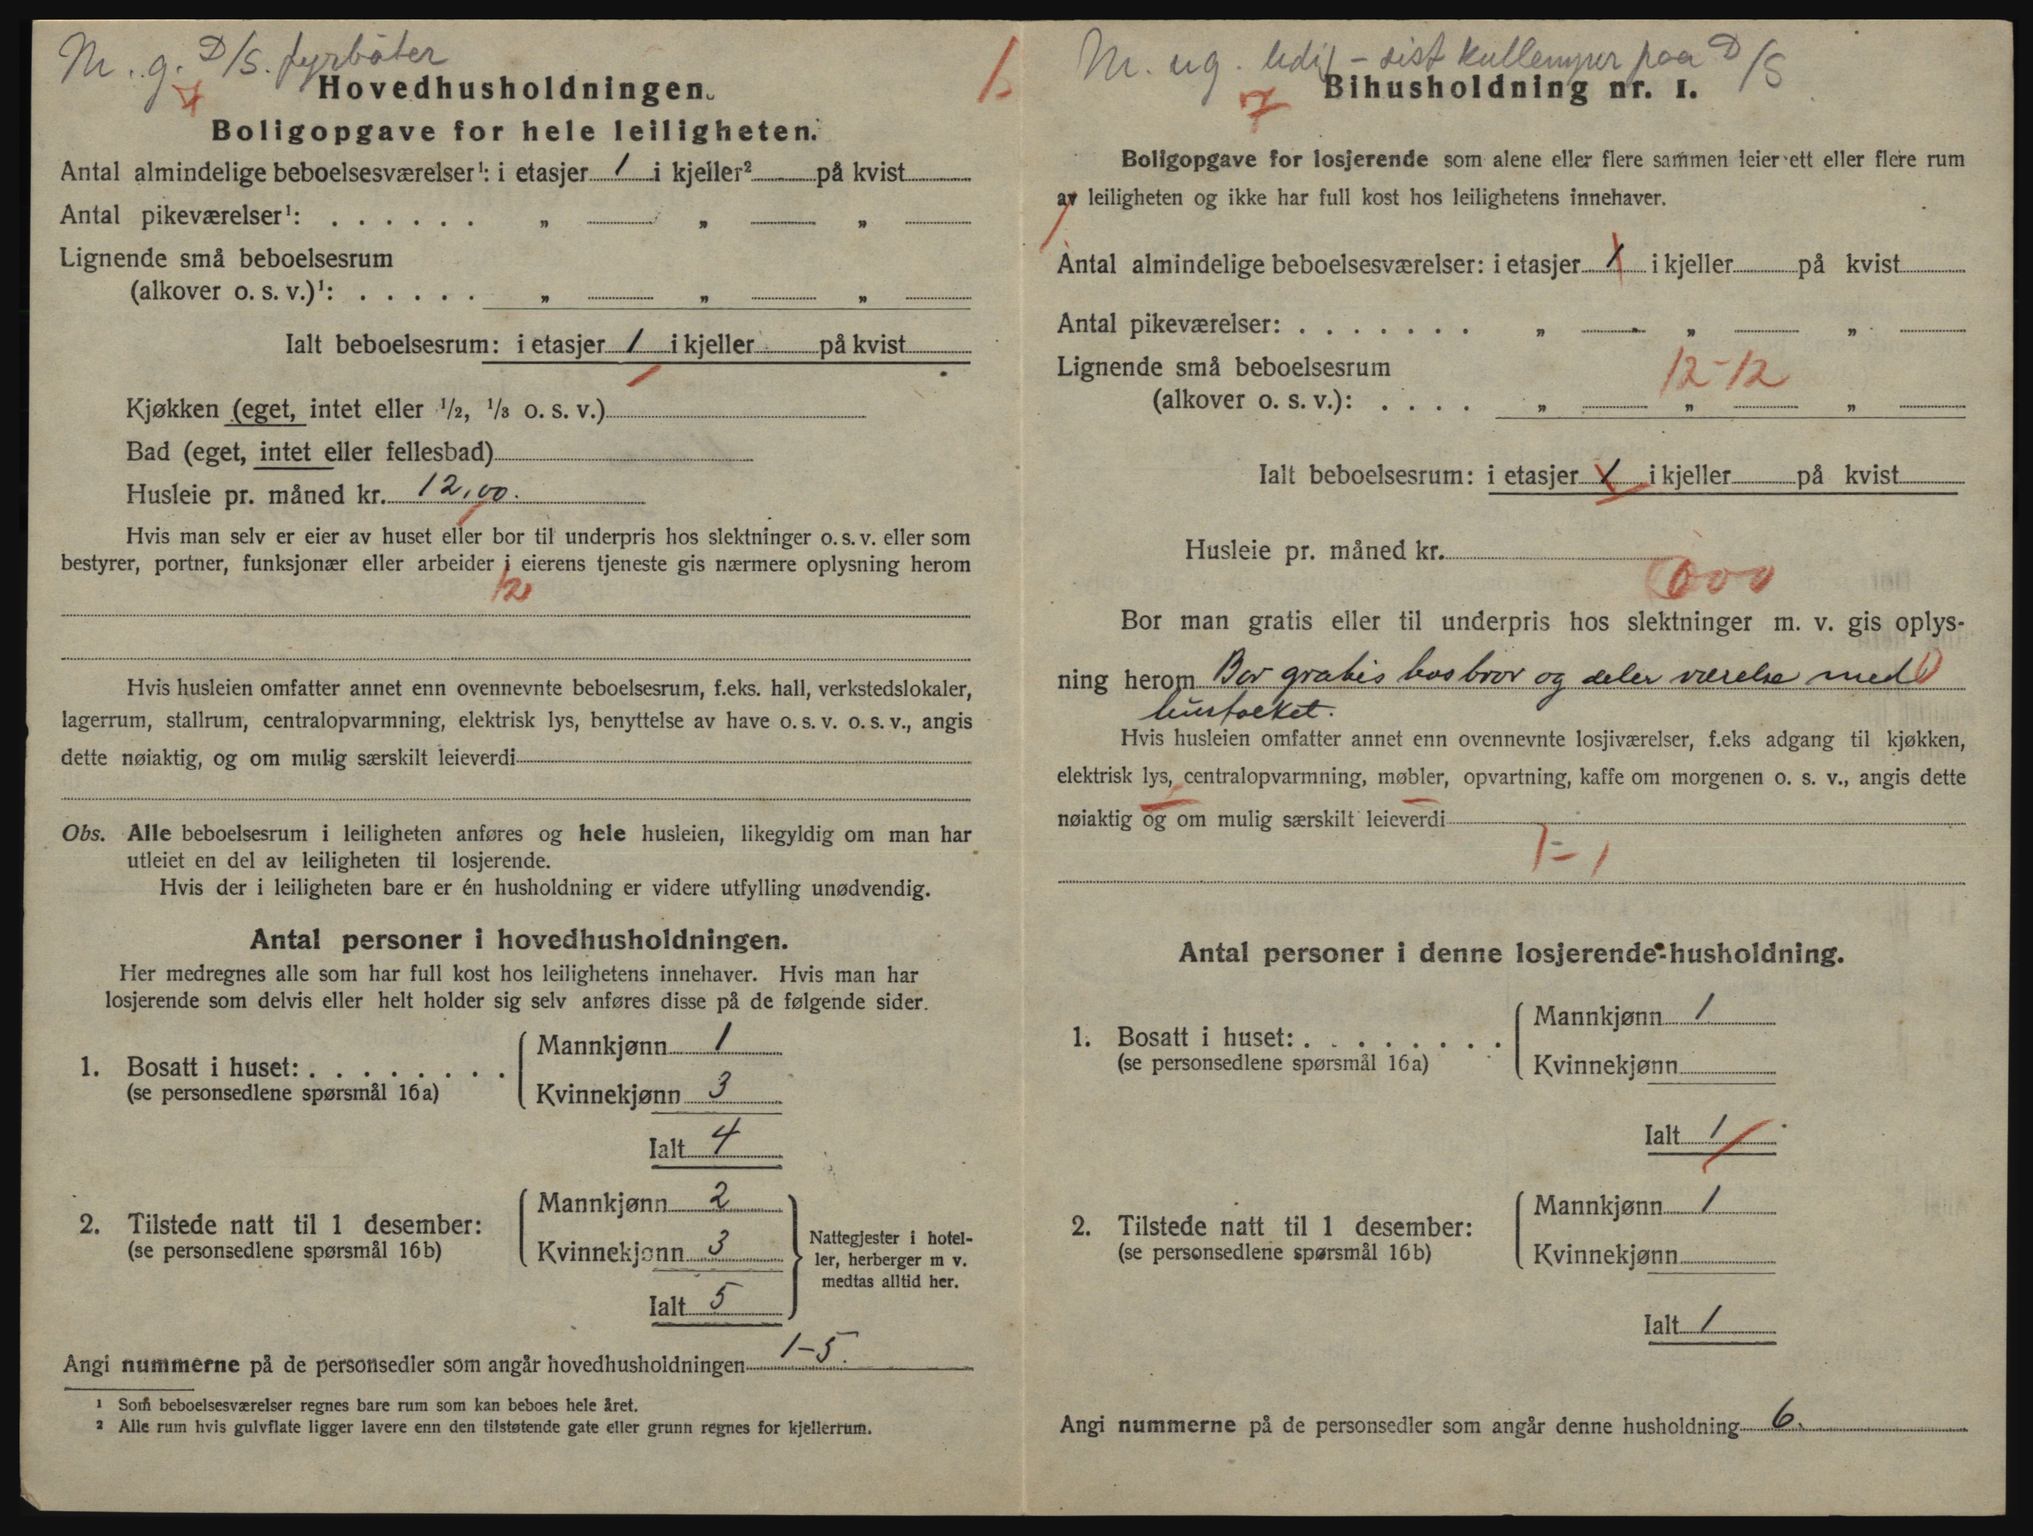 M. g. D/S. fyrbøter
Hovedhusholdningen.
Boligopgave for hele leiligheten.
Antal almindelige beboelsesværelser¹: i etasjer 1 i kjeller² på kvist
Antal pikeværelser¹: . . . . . . „ „ „
Lignende små beboelsesrum
(alkover o. s. v.)¹: . . . . . „ „ „
Ialt beboelsesrum: i etasjer 1 i kjeller på kvist
Kjøkken (eget, intet eller 1/2, 1/3 o. s. v.)
Bad (eget, intet eller fellesbad)
Husleie pr. måned kr. 12,00.
Hvis man selv er eier av huset eller bor til underpris hos slektninger o. s. v. eller som
bestyrer, portner, funksjonær eller arbeider i eierens tjeneste gis nærmere oplysning herom
12
Hvis husleien omfatter annet enn ovennevnte beboelsesrum, f.eks. hall, verkstedslokaler,
lagerrum, stallrum, centralopvarmning, elektrisk lys, benyttelse av have o. s. v. o. s. v., angis
dette nøiaktig, og om mulig særskilt leieverdi
Obs. Alle beboelsesrum i leiligheten anføres og hele husleien, likegyldig om man har
utleiet en del av leiligheten til losjerende.
Hvis der i leiligheten bare er én husholdning er videre utfylling unødvendig.
Antal personer i hovedhusholdningen.
Her medregnes alle som har full kost hos leilighetens innehaver. Hvis man har
losjerende som delvis eller helt holder sig selv anføres disse på de følgende sider.
1. Bosatt i huset: . . . . . . . .
(se personsedlene spørsmål 16a)
Mannkjønn 1
Kvinnekjønn 3
Ialt 4
2. Tilstede natt til 1 desember:
(se personsedlene spørsmål 16b)
Mannkjønn 2
Kvinnekjønn 3
Ialt 5
Nattegjester i hotel-
ler, herberger m v.
medtas alltid her.
Angi nummerne på de personsedler som angår hovedhusholdningen 1-5.
¹ Som beboelsesværelser regnes bare rum som kan beboes hele året.
² Alle rum hvis gulvflate ligger lavere enn den tilstøtende gate eller grunn regnes for kjellerrum.
1.
M. ug. ledig - sist kullemper paa D/S
7
Bihusholdning nr. 1.
Boligopgave for losjerende som alene eller flere sammen leier ett eller flere rum
av leiligheten og ikke har full kost hos leilighetens innehaver.
Antal almindelige beboelsesværelser: i etasjer 1 i kjeller på kvist
Antal pikeværelser: . . . . . . . „ „ „
Lignende små beboelsesrum
12-12
(alkover o. s. v.): . . . . „ „ „
Ialt beboelsesrum: i etasjer 1 i kjeller på kvist
Husleie pr. måned kr.
000
Bor man gratis eller til underpris hos slektninger m. v. gis oplys-
ning herom Bor gratis hos bror og deler værelse med
husfolket.
Hvis husleien omfatter annet enn ovennevnte losjiværelser, f.eks adgang til kjøkken,
elektrisk lys, centralopvarmning, møbler, opvartning, kaffe om morgenen o. s. v., angis dette
nøiaktig og om mulig særskilt leieverdi
1-1
Antal personer i denne losjerende-husholdning.
1. Bosatt i huset: . . . . . . . .
(se personsedlene spørsmål 16a)
Mannkjønn 1
Kvinnekjønn
Ialt 1
2. Tilstede natt til 1 desember:
(se personsedlene spørsmål 16b)
Mannkjønn 1
Kvinnekjønn
Ialt 1
Angi nummerne på de personsedler som angår denne husholdning 6.